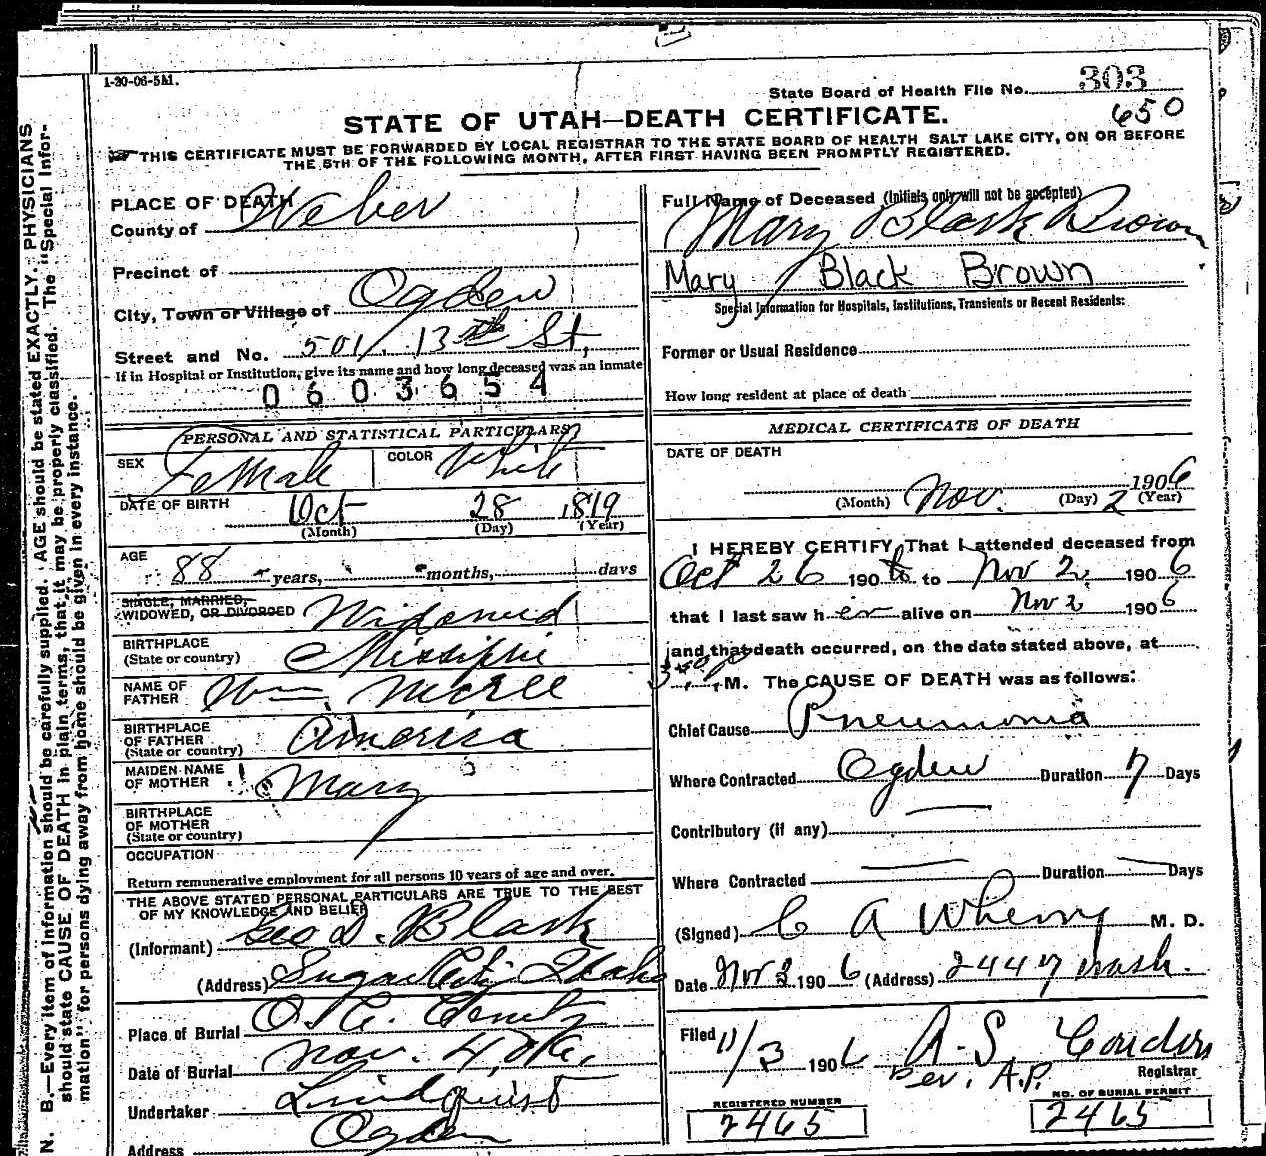 1-20-06-5M.
State Board of Health File No. 303
650
STATE OF UTAH—DEATH CERTIFICATE.
THIS CERTIFICATE MUST BE FORWARDED BY LOCAL REGISTRAR TO THE STATE BOARD OF HEALTH SALT LAKE CITY, ON OR BEFORE
THE 5TH OF THE FOLLOWING MONTH, AFTER FIRST HAVING BEEN PROMPTLY REGISTERED.
N. B.—Every item of information should be carefully supplied. AGE should be stated EXACTLY. PHYSICIANS
should state CAUSE OF DEATH in plain terms, that it may be properly classified. The "Special Infor-
mation" for persons dying away from home should be given in every instance.
PLACE OF DEATH
County of Weber
Precinct of
City, Town or Village of Ogden
Street and No. 501. 13th St,
If in Hospital or Institution, give its name and how long deceased was an inmate
0603654
PERSONAL AND STATISTICAL PARTICULARS
SEX Female COLOR White
DATE OF BIRTH Oct 28 1819
(Month) (Day) (Year)
AGE
88 years, months, days
SINGLE, MARRIED,
WIDOWED, OR DIVORCED Widowed
BIRTHPLACE
(State or country) Missippi
NAME OF
FATHER Wm McRee
BIRTHPLACE
OF FATHER
(State or country) America
MAIDEN NAME
OF MOTHER Mary
BIRTHPLACE
OF MOTHER
(State or country)
OCCUPATION
Return remunerative employment for all persons 10 years of age and over.
THE ABOVE STATED PERSONAL PARTICULARS ARE TRUE TO THE BEST
OF MY KNOWLEDGE AND BELIEF
(Informant) Geo D. Black
(Address) Sugar City Idaho
Place of Burial
Date of Burial Nov. 4, 06.
Undertaker Lindquist
Address Ogden
Full Name of Deceased (Initials only will not be accepted)
Mary Black Brown
Mary Black Brown
Special Information for Hospitals, Institutions, Transients or Recent Residents:
Former or Usual Residence
How long resident at place of death
MEDICAL CERTIFICATE OF DEATH
DATE OF DEATH
1906
(Month) Nov. (Day) 2 (Year)
I HEREBY CERTIFY, That I attended deceased from
Oct 26 1906 to Nov 2 1906
that I last saw her alive on Nov 2 1906
and that death occurred, on the date stated above, at
M. The CAUSE OF DEATH was as follows:
Chief Cause Pneumonia
Where Contracted Ogden Duration 7 Days
Contributory (if any)
Where Contracted Duration Days
(Signed) C A Wherry M. D.
Date Nov 3 1906 (Address) 2447 Wash.
Filed 11/3 1906 A. S. Condon
Registrar
Per. A.P.
REGISTERED NUMBER
2465
NO. OF BURIAL PERMIT
2465